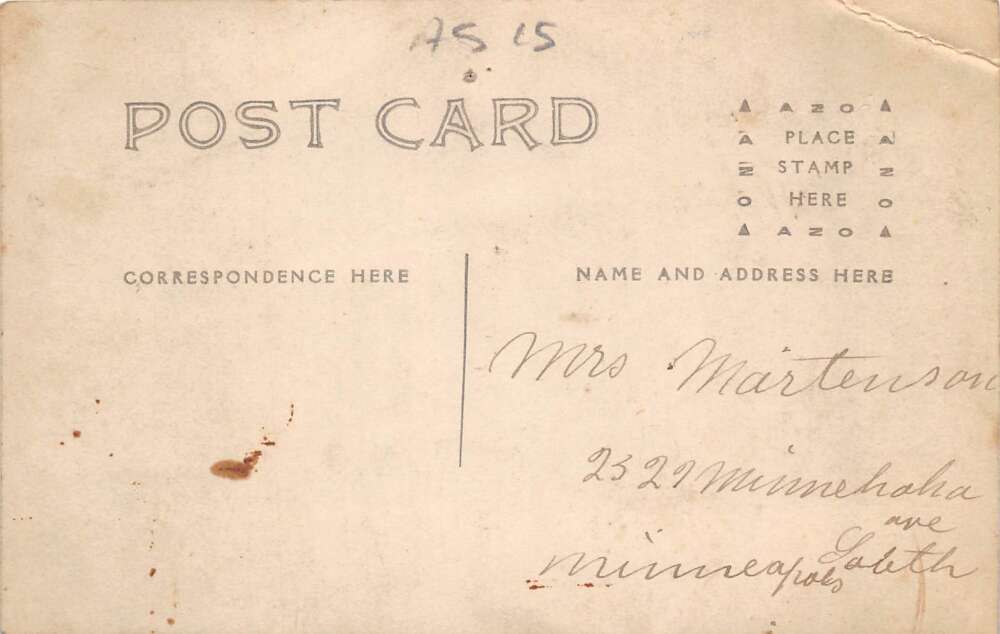 AS 15
POST CARD
▲ AZO ▲
A PLACE A
N STAMP N
O HERE O
▲ AZO ▲
CORRESPONDENCE HERE
NAME AND ADDRESS HERE
Mrs Martenson
Minnehaha
ave
South
Minneapolis